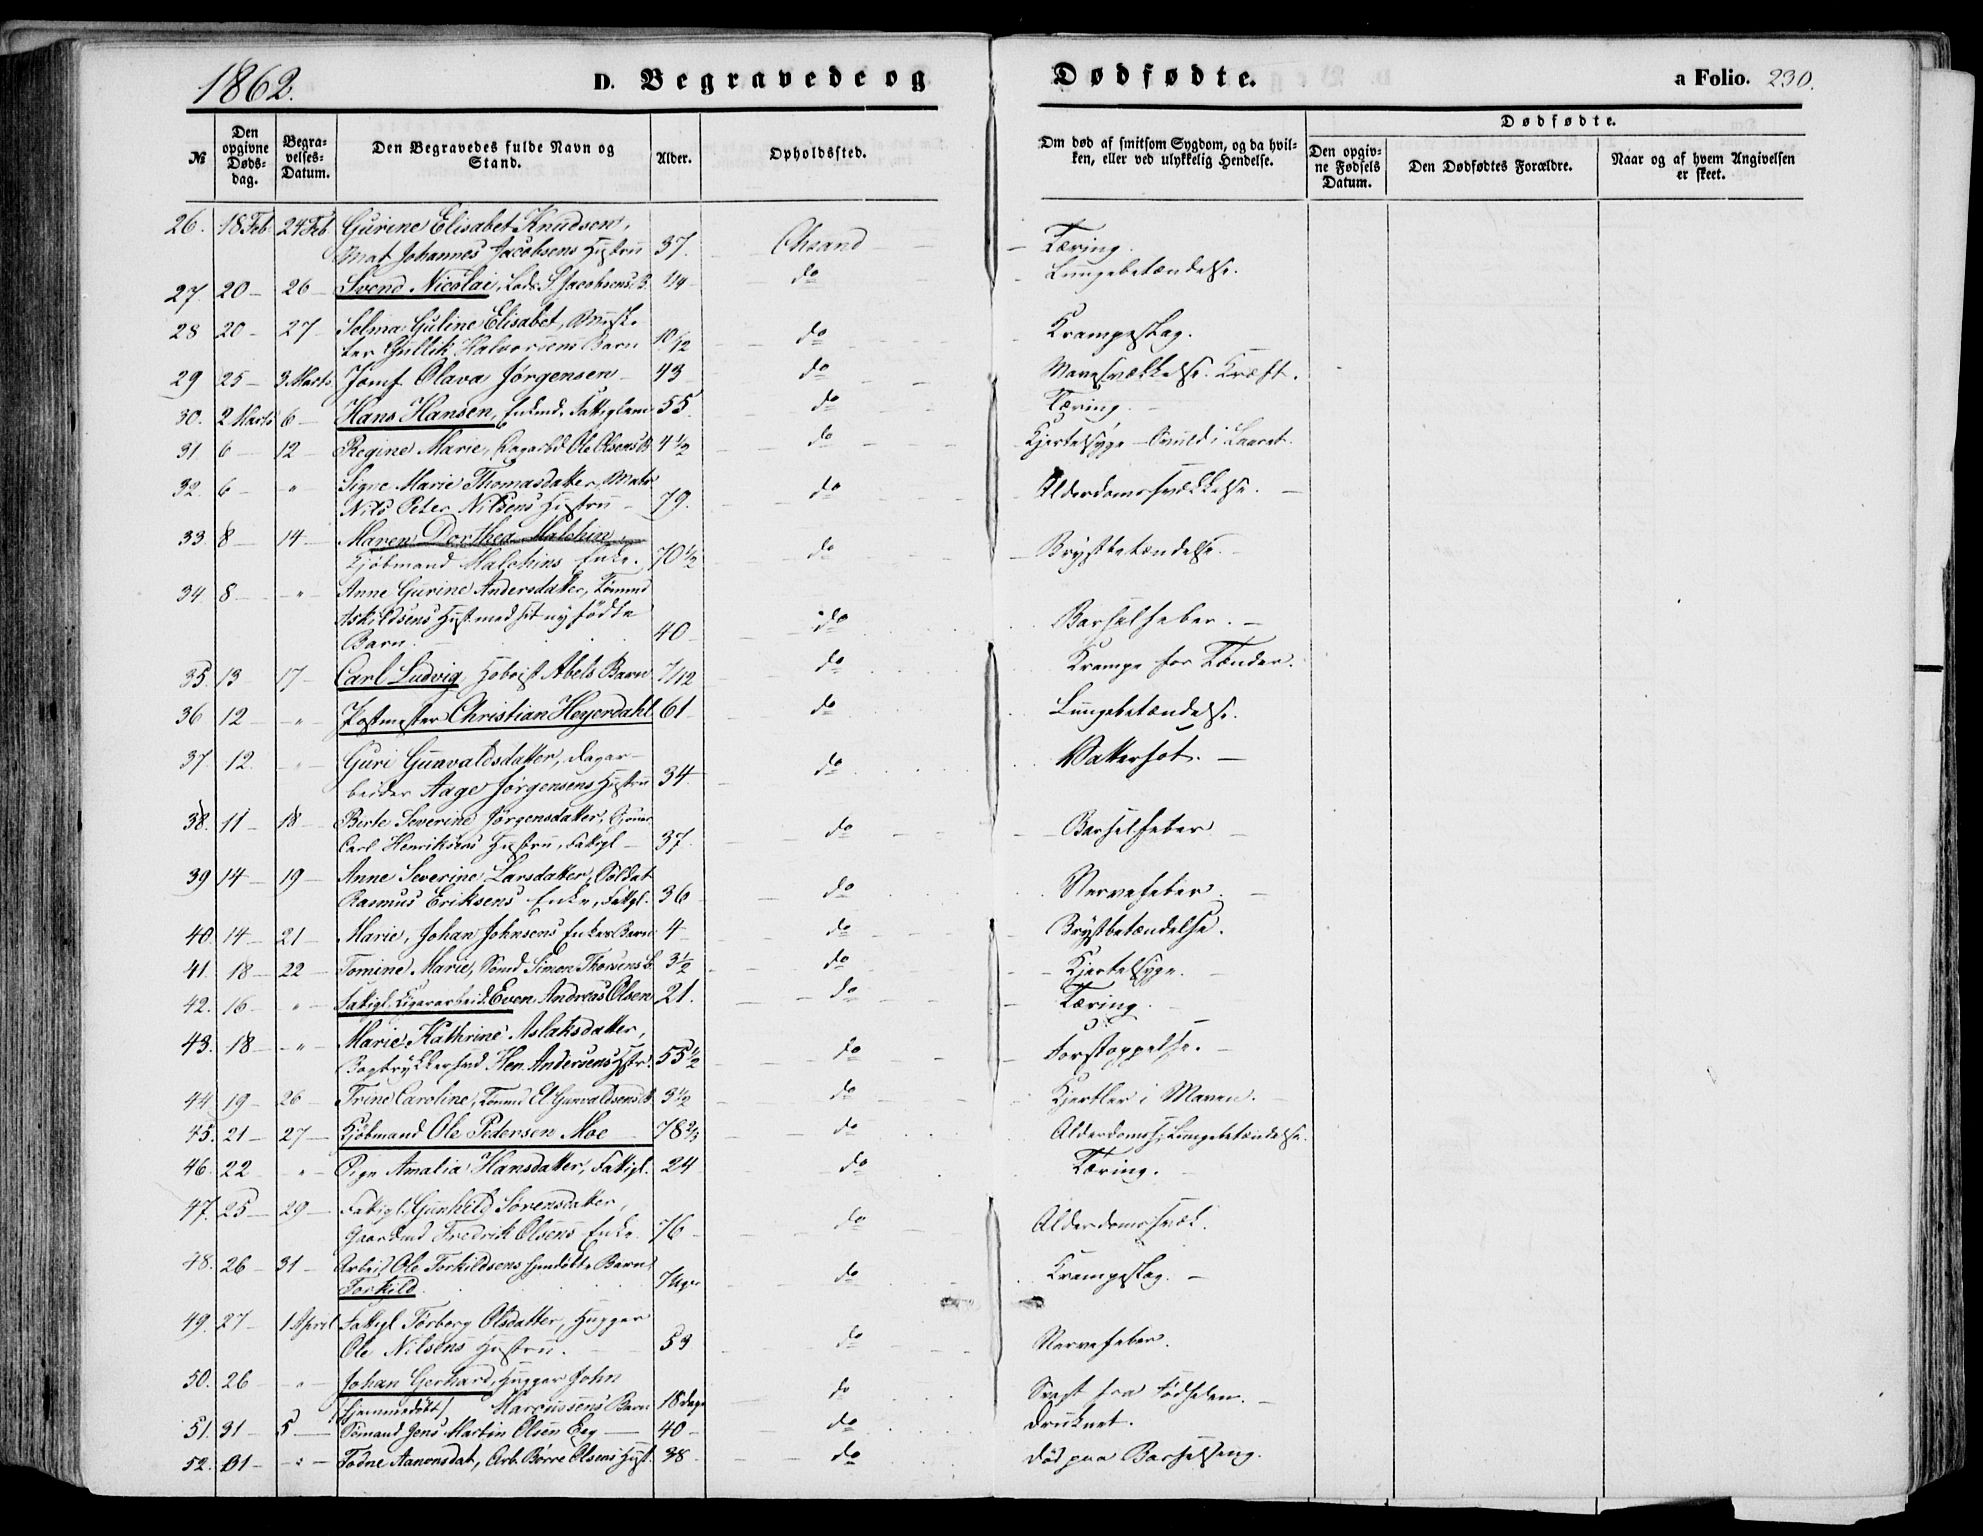 1862.
D. Begravede og Dødfødte.
a Folio. 230.
№
Den opgivne Døds-dag.
Begra-velses-Datum.
Den Begravedes fulde Navn og Stand.
Alder.
Opholdssted.
Om død af smitsom Sygdom, og da hvil-ken, eller ved ulykkelig Hendelse.
Dødfødte.
Den opgiv-ne Fødsels Datum.
Den Dødfødtes Forældre.
Naar og af hvem Angivelsen er skeet.
26. 18 Feb. 24 Feb Gurine Elisabet Knudsen,
Mat Johannes Jacobsens Hustru 37. Chsand Tæring.
27. 20 - 26 - Svend Nicolai, Lods S. Jacobsens B. 1/4 do Lungebetændelse.
28 20 - 27 - Selma Guline Elisabet, Muske-
ter Gullik Halvorsens Barn 10/12 do Krampeslag.
29 25 - 3 Marts Jomf Olava Jørgensen 43 do Mavesvækkelse. Kræft.
30. 2 Marts 6 - Hans Hansen, Enkmd. Fattiglem 55. do Tæring.
31 6 - 12 - Regine Marie, Dagarbd. Ole Olsens B 4 1/2 do Kjertelsyge - Svuld i Laaret.
32. 6 - " - Signe Marie Thomasdatter, Matr
Nils Peter Nilsens Hustru 79. do Alderdomssvækkelse.
33. 8 14 - Maren Dorthea Malchin,
Kjøbmand Malchins Enke. 70 1/2 do Brystbetændelse.
34 8 - " - Anne Gurine Andersdatter, Tømmd
Askildsens Hust med sit nyfødte
Barn. 40 - do Barselfeber.
35. 13 17 - Carl Ludvig, Hoboist Abels Barn 7/12 do Krampe for Tænder.
36 12 - " - Postmester Christian Heyerdahl 61 - do Lungebetændelse.
37. 12. - " - Guri Gunvaldsdatter, Dagar-
beider Aage Jørgensens Hustru 34 do Vattersot.
38. 11 - 18 - Berte Severine Jørgensdatter,
Carl Henriksens Hustru, Fattigl - 37. do Barselfeber
39 14 - 19 - Anne Severine Larsdatter, Soldat
Rasmus Eriksens Enke, Fattgl. 36 do Nervefeber.
40. 14 - 21 - Marie, Johan Johnsens Enkes Barn 4 - do Brystbetændelse.
41. 18 - 22 - Tomine Marie, Sømd Simon Thorsens B. 3 1/2 do Kjertelsyge.
42. 16 - " - Fattigl. Cigararbeid. Even Andreas Olsen 21. do Tæring.
43. 18 - " - Marie Kathrine Aslaksdatter,
Bogtrykkersvd Hen. Andersens Hstr. 55 1/2 do Forstoppelse.
44 19 - 26 - Trine Caroline, Tømmd El Gunvaldsens B 3 1/2 do Kjertler i Maven.
45. 21 - 27 - Kjøbmand Ole Pedersen Moe 78 2/3 do Alderdomss; Lungebetændelse.
46. 22 " - Pige Amalia Hansdatter, Fattigl. 24 do Tæring.
47. 25 - 29 - Fattigl. Gunhild Sørensdatter,
Gaardmd Fredrik Olsens Enke. 76 - do Alderdomssvæk.
48. 26 - 31 - Arbeid Ole Torkildsens hjemdøbte Barn,
Torkild. 7 Uger do Krampeslag.
49. 27 - 1 April Fattigl Torborg Olsdatter, Hugger
Ole Nilsens Hustru. 53 do Nervefeber.
50. 26 - " - Johan Gerhard, Hugger John
(hjemmedøbt) Marcussens Barn 18 dage do Svag fra Fødselen.
51. 31 - 5 - Sømand Jens Martin Olsen Eeg 40 - do Druknet.
52. 31 - " - Todne Aanensdat, Arb. Børre Olsens Hust. 38 - do Død paa Barselseng.